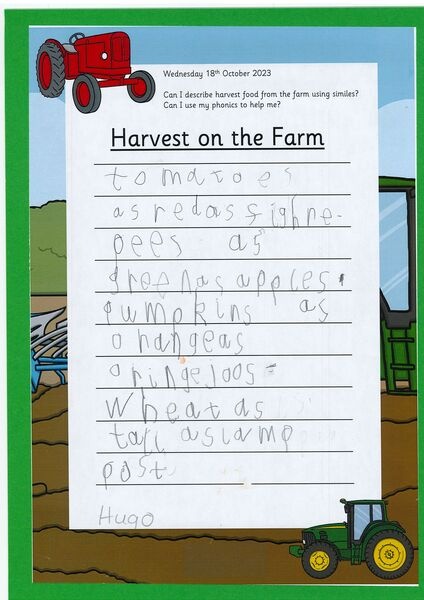 Wednesday 18th October 2023
Can I describe harvest food from the farm using similes?
Can I use my phonics to help me?
Harvest on the Farm
tomatoes
as redas fighre-
pees as
greenas apples.
pumpkins as
orangeas
oringejoos
wheat as
tall aslamp
post
Hugo